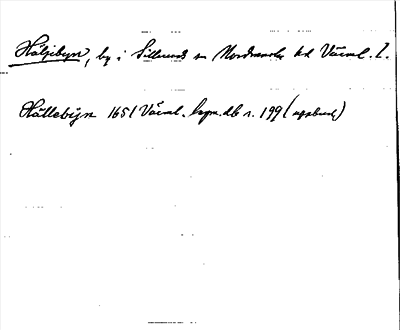 Höljebyn, by i Sillerud sn Nordmarks hd Värml. l.
Hällebÿn 1651 Värml. lagm.db r. 199 (uppbud)